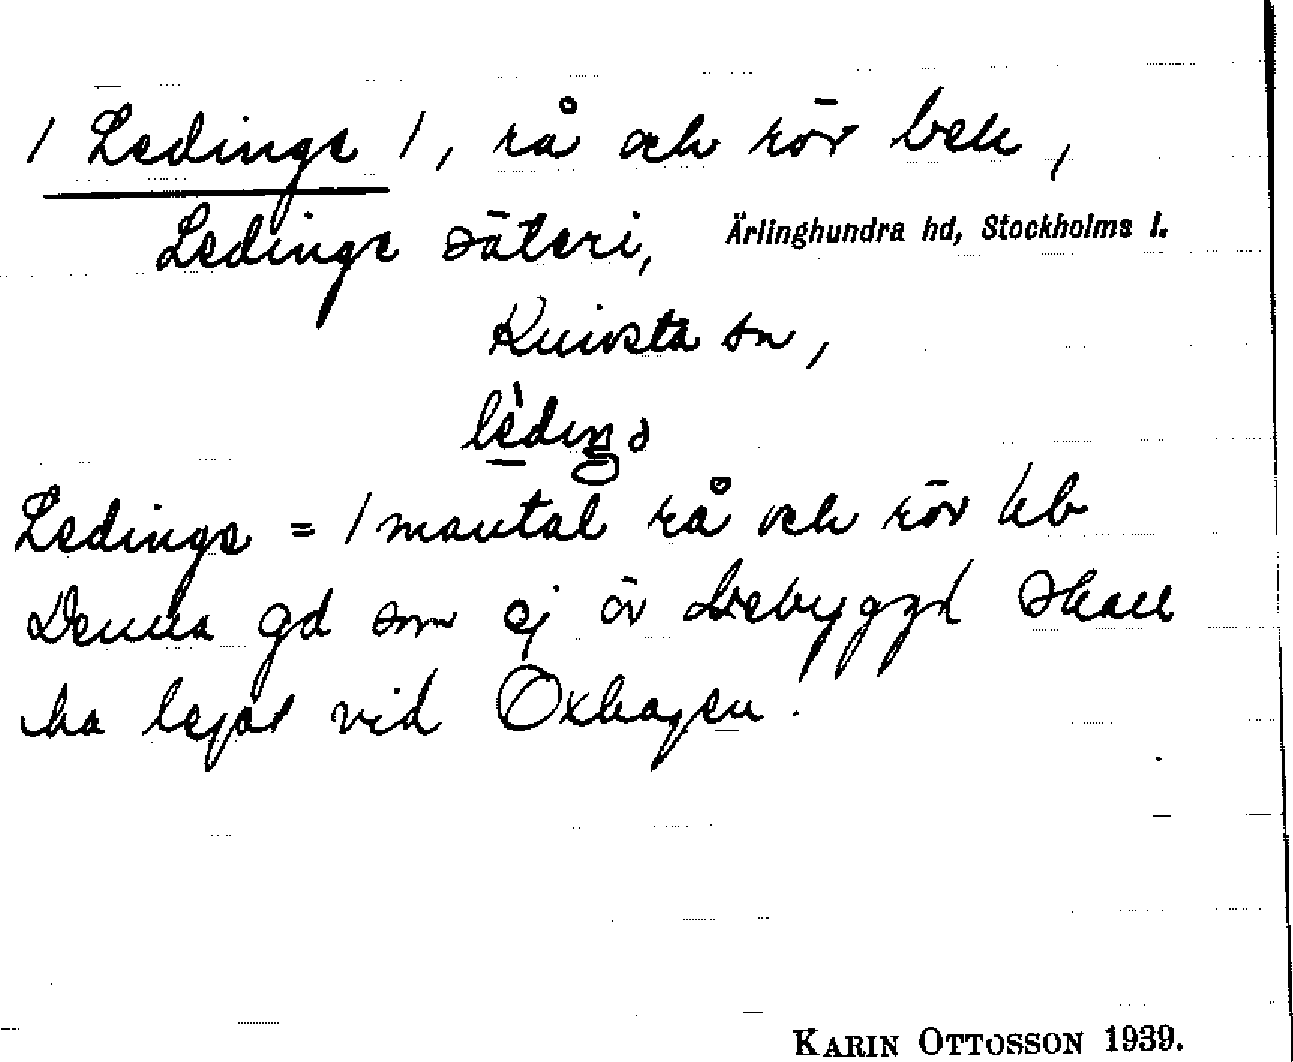 / Ledinge /, rå och rör bek,
Ledinge säteri, Ärlinghundra hd, Stockholms l.
Knivsta sn,
Ledinge = 1 mantal rå och rör kb
Denna gd som ej är bebyggd skall
ha legat vid Oxhagen.
KARIN OTTOSSON 1939.